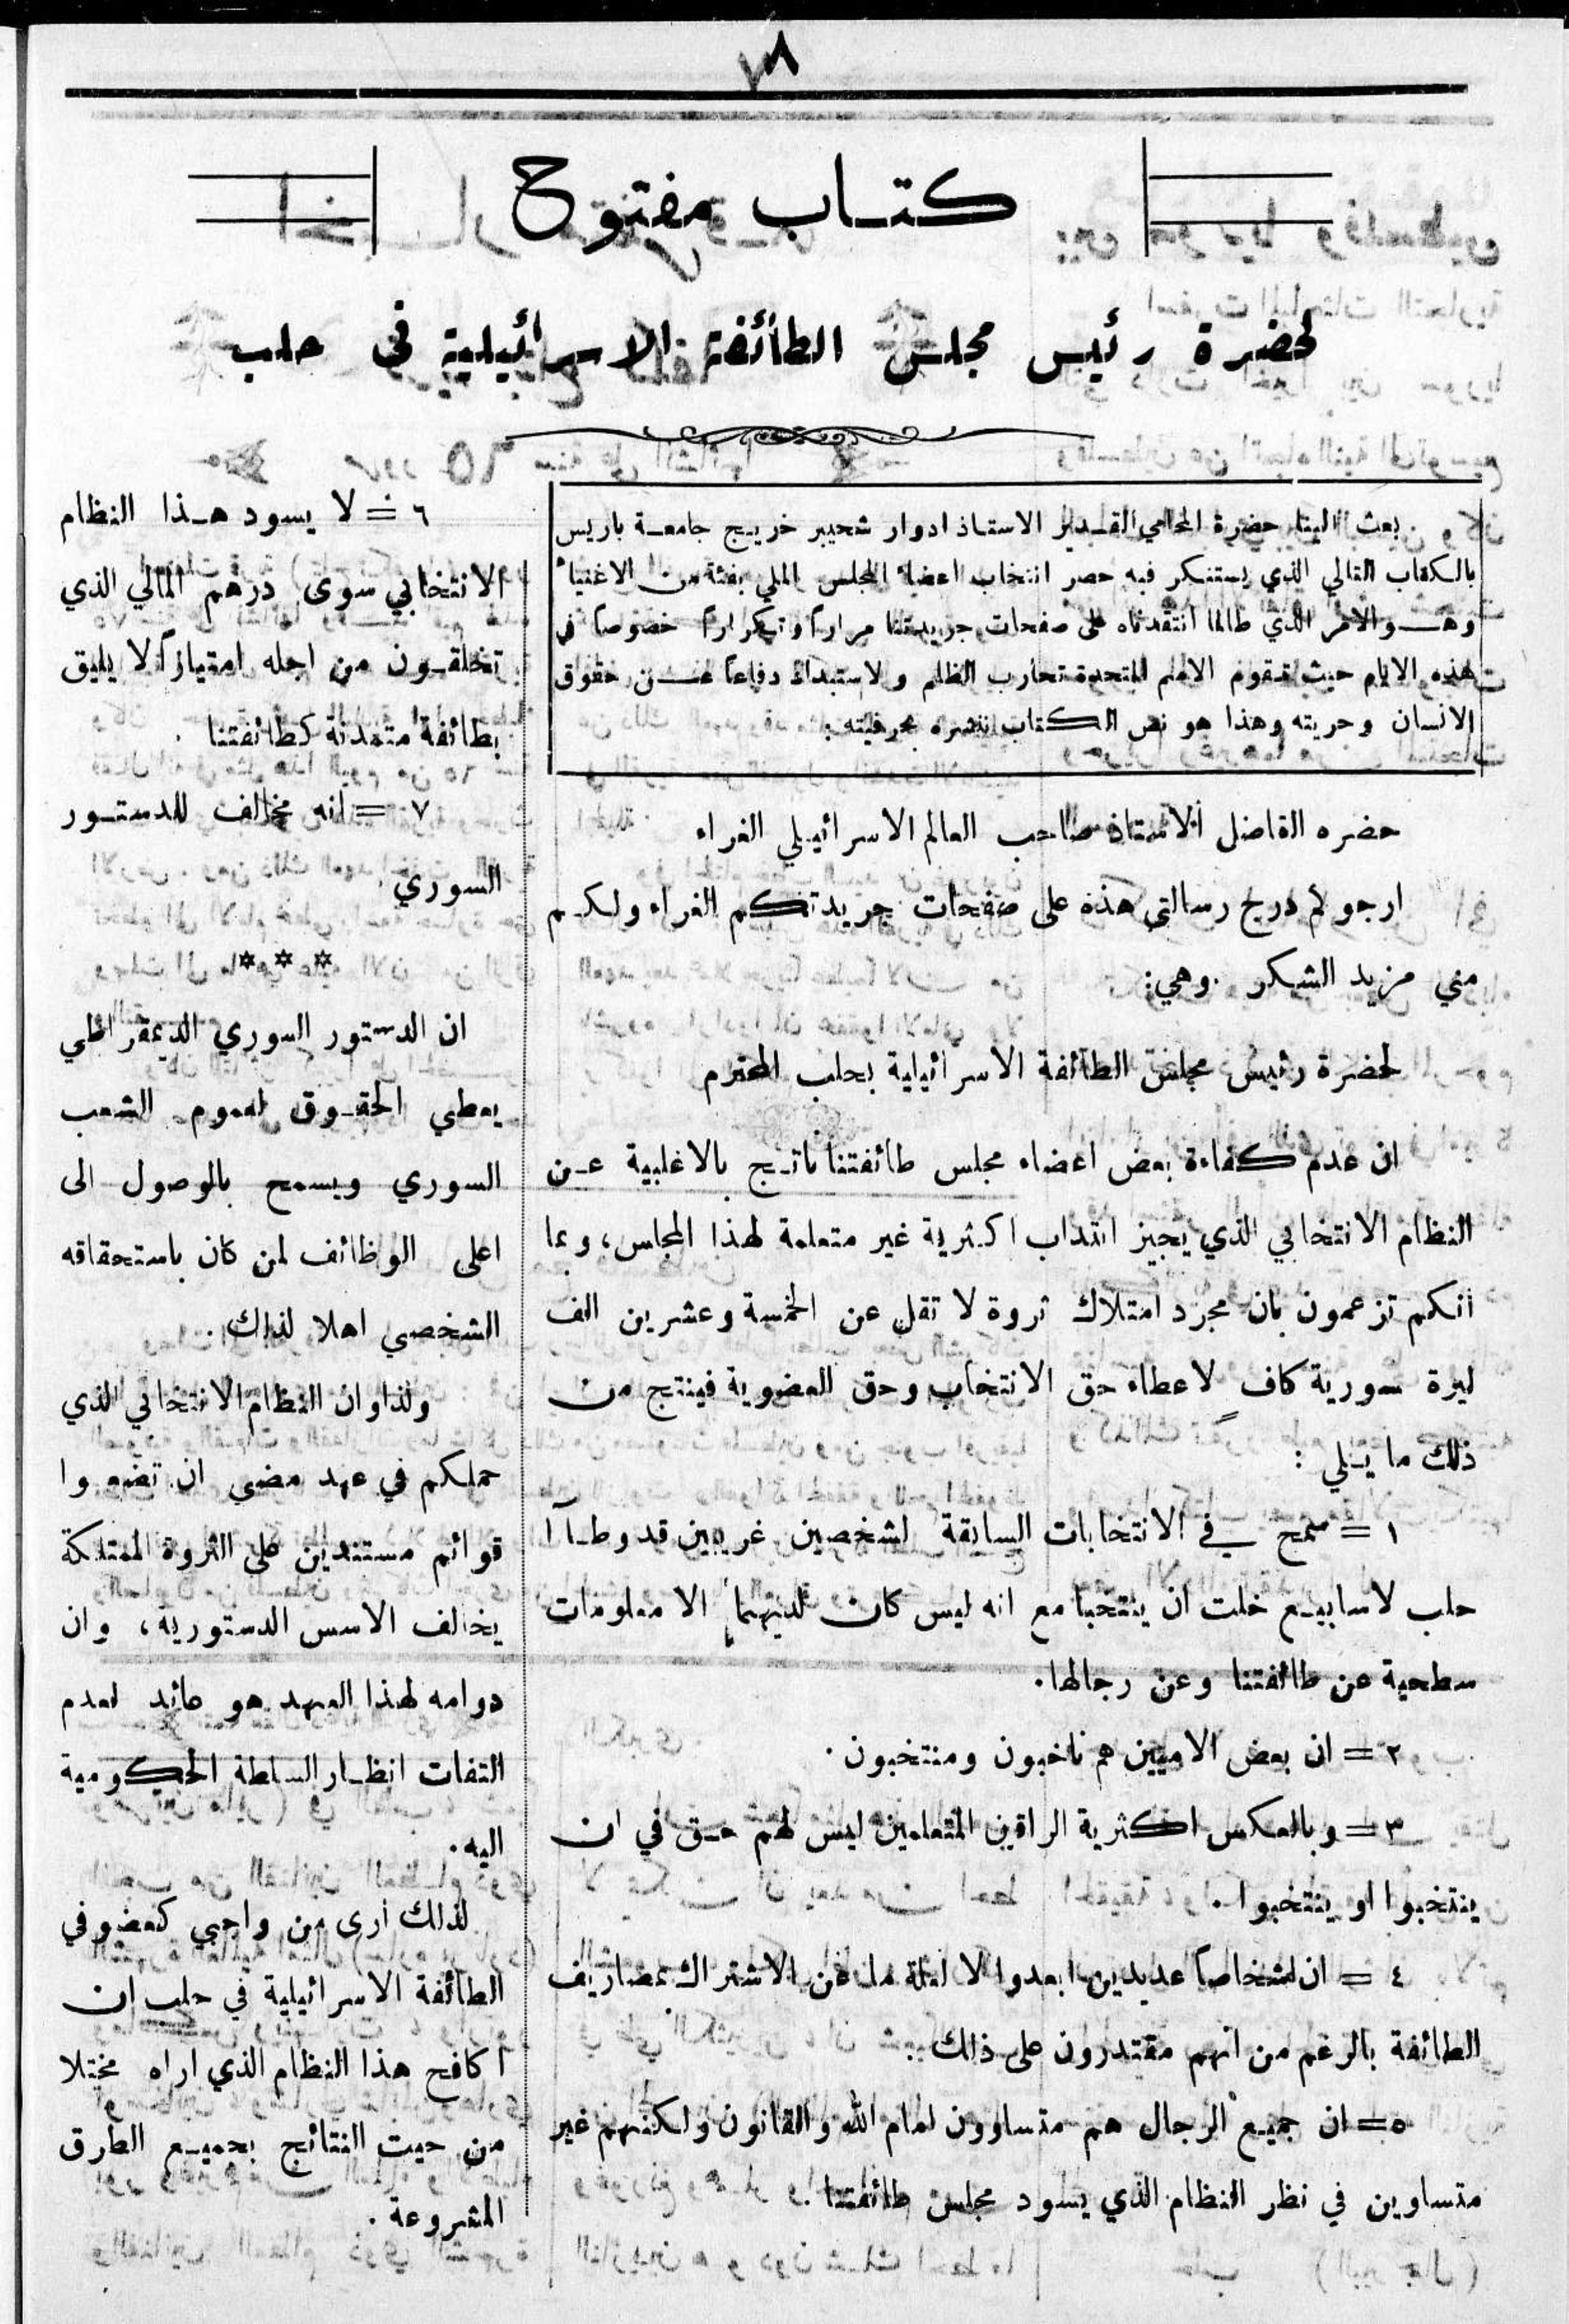 ٨
كتاب مفتوح
لحضرة رئيس مجلس الطائفة الاسرائيلية في حلب
بعث الينا حضرة المحامي القدير الاستاذ ادوار شحيبر خريج جامعة باريس
بالكتاب التالي الذي يستنكر فيه حصر انتخاب اعضاء المجلس الملي بفئة من الاغنياء
وهو الامر الذي طالما انتقدناه على صفحات جريدتنا مراراً وتكراراً خصوصاً في
هذه الايام حيث تقوم الامم المتحدة تحارب الظلم ولاستبداد دفاعاً عن حقوق
الانسان وحريته وهذا هو نص الكتاب ننشره بحرفيته :
حضره الفاضل الاستاذ صاحب العالم الاسرائيلي الغراء
ارجوكم درج رسالتي هذه على صفحات جريدتكم الغراء ولكم
مني مزيد الشكر . وهي:
لحضرة رئيس مجلس الطائفة الاسرائيلية بحلب المحترم
ان عدم كفاءة بعض اعضاء مجلس طائفتنا ناتج بالاغلبية عن
النظام الانتخابي الذي يجيز انتداب اكثرية غير متعلمة لهذا المجلس، وبما
انكم تزعمون بان مجرد امتلاك ثروة لا تقل عن الخمسة وعشرين الف
ليرة سورية كاف لاعطاء حق الانتخاب وحق العضوية فينتج من
ذلك ما يلي :
١ = سمح في الانتخابات السابقة لشخصين غريبين قد وطأا
حلب لاسابيع خلت ان ينتخبا مع انه ليس كان لديهما الا معلومات
سطحية عن طائفتنا وعن رجالها.
٢ = ان بعض الاميين هم ناخبون ومنتخبون .
٣ = وبالعكس اكثرية الراقين المتعلمين ليس لهم حق في ان
ينتخبوا او ينتخبوا .
٤ = ان اشخاصاً عديدين ابعدوا لا لعلة ما عن الاشتراك بمصاريف
الطائفة بالرغم من انهم مقتدرون على ذلك .
٥ = ان جميع الرجال هم متساوون امام الله والقانون ولكنهم غير
متساوين في نظر النظام الذي يسود مجلس طائفتنا .
٦ = لا يسود هذا النظام
الانتخابي سوى درهم المالي الذي
تخلقون من اجله امتيازاً لا يليق
بطائفة متمدنة كطائفتنا .
٧ = انه مخالف للدستور
السوري
***
ان الدستور السوري الديمقراطي
يعطي الحقوق لعموم الشعب
السوري ويسمح بالوصول الى
اعلى الوظائف لمن كان باستحقاقه
الشخصي اهلا لذلك .
ولذا وان النظام الانتخابي الذي
حملكم في عهد مضى ان تضعوا
قوائم مستندين على الثروة الممتلكة
يخالف الاسس الدستورية، وان
دوامه لهذا العهد هو عائد لعدم
التفات انظار السلطة الحكومية
اليه .
لذلك أرى من واجبي كعضو في
الطائفة الاسرائيلية في حلب ان
اكافح هذا النظام الذي اراه مختلا
من حيث النتائج بجميع الطرق
المشروعة .